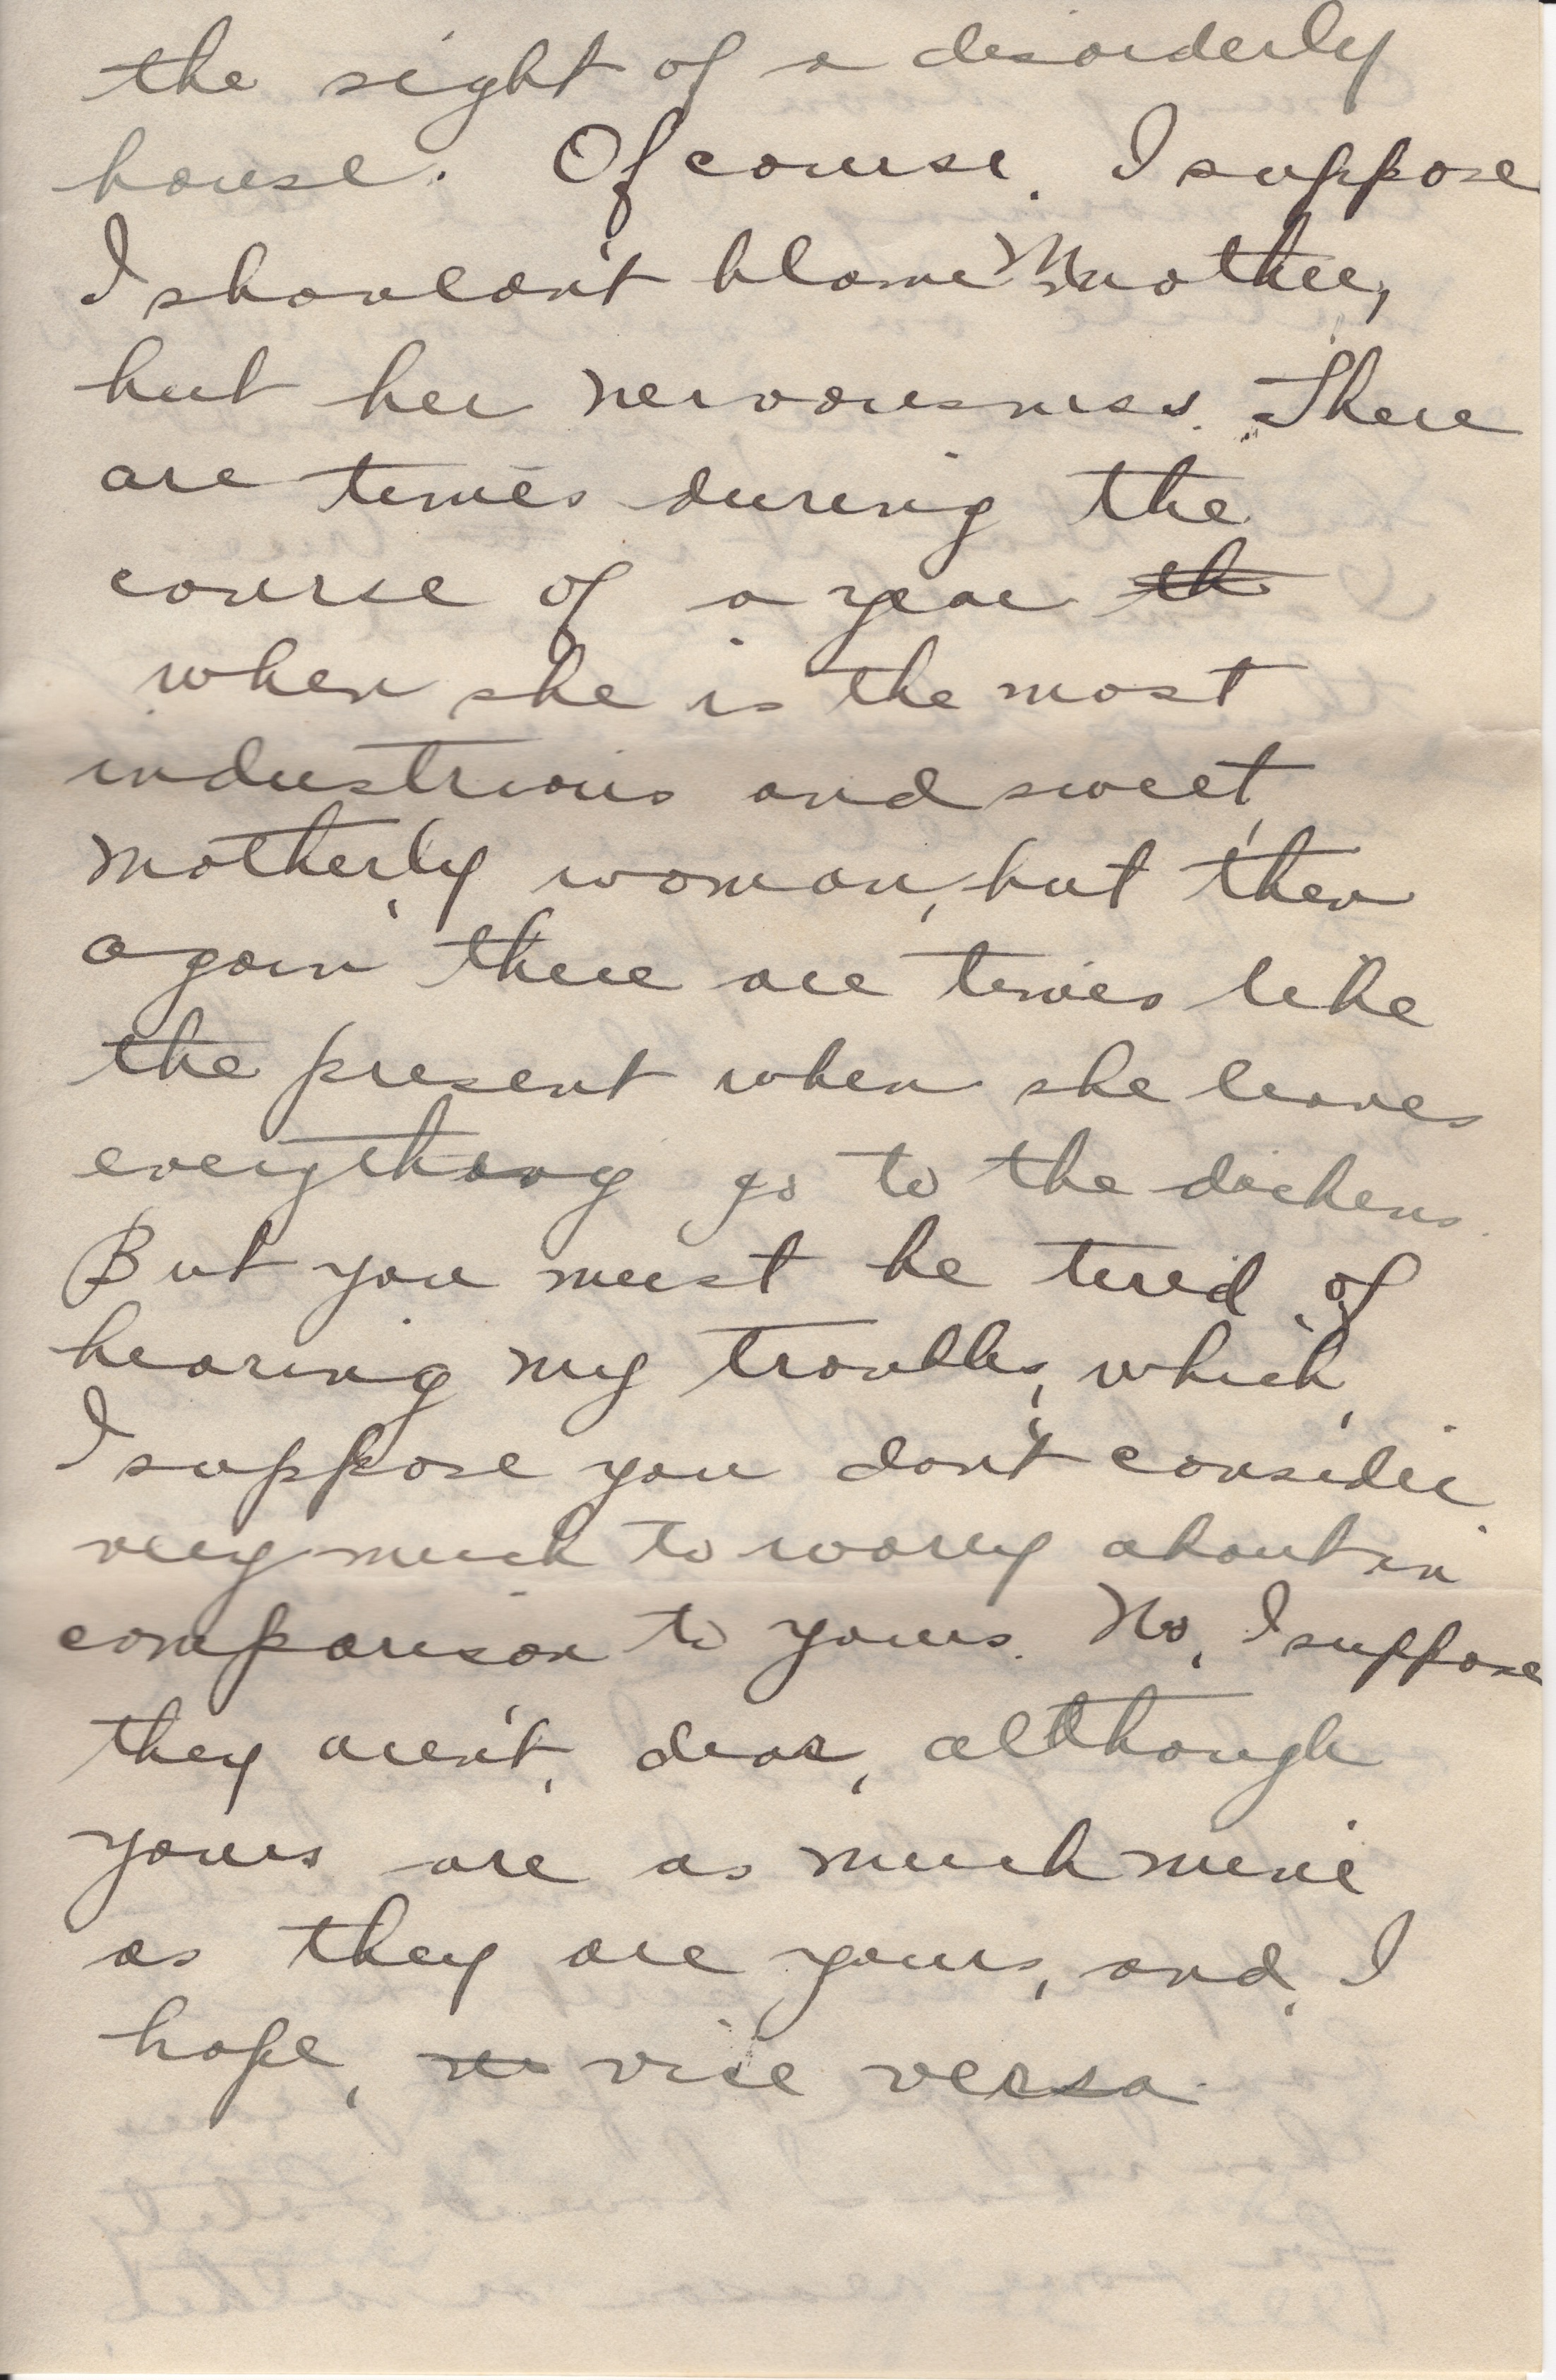 the sight of a disorderly
house. Of course, I suppose
I shouldn't blame Mother,
but her nervousness. There
are times during the
course of a year th
when she is the most
industrious and sweet,
motherly woman, but then
again there are times like
the present when she leaves
everything go to the dickens.
But you must be tired of
hearing my troubles, which,
I suppose you don't consider
very much to worry about in
comparison to yours. No, I suppose
they aren't, dear, although
yours are as much mine
as they are yours, and, I
hope, vice versa.